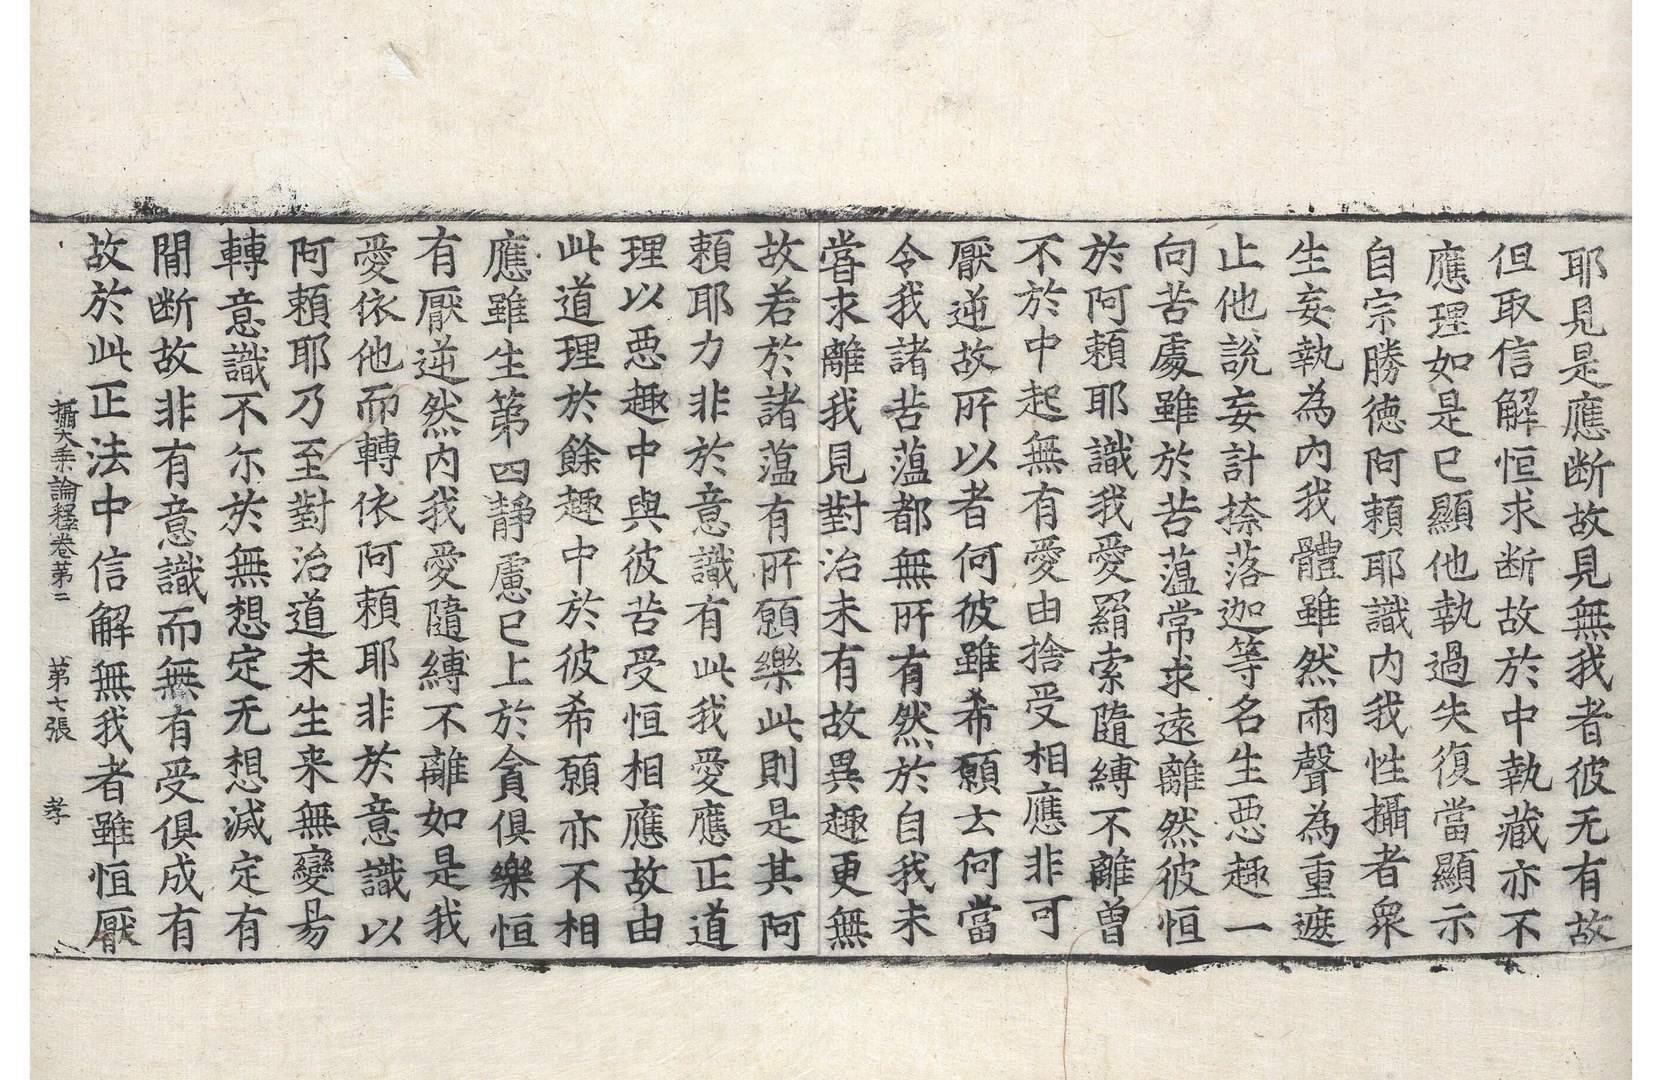 耶見是應断故見無我者彼无有故
但取信解恒求断故於中執藏亦不
應理如是已顯他執過失復當顯示
自宗勝德阿頼耶識内我性攝者衆
生妄執為内我體雖然雨聲為重遮
止他說妄計捺落迦等名生惡趣一
向苦處雖於苦蘊常求遠離然彼恒
於阿頼耶識我愛羂索隨縛不離曾
不於中起無有愛由捨受相應非可
厭逆故所以者何彼雖希願云何當
令我諸苦蘊都無所有然於自我未
嘗求離我見對治未有故異趣更無
故若於諸蘊有所願樂此則是其阿
頼耶力非於意識有此我愛應正道
理以惡趣中與彼苦受恒相應故由
此道理於餘趣中於彼希願亦不相
應雖生第四靜慮已上於貪俱樂恒
有厭逆然内我愛隨縛不離如是我
愛依他而轉依阿頼耶非於意識以
阿頼耶乃至對治道未生來無變易
轉意識不尓於無想定无想滅定有
間断故非有意識而無有受俱成有
故於此正法中信解無我者雖恒厭
攝大乗論釋卷第二 第七張 孝